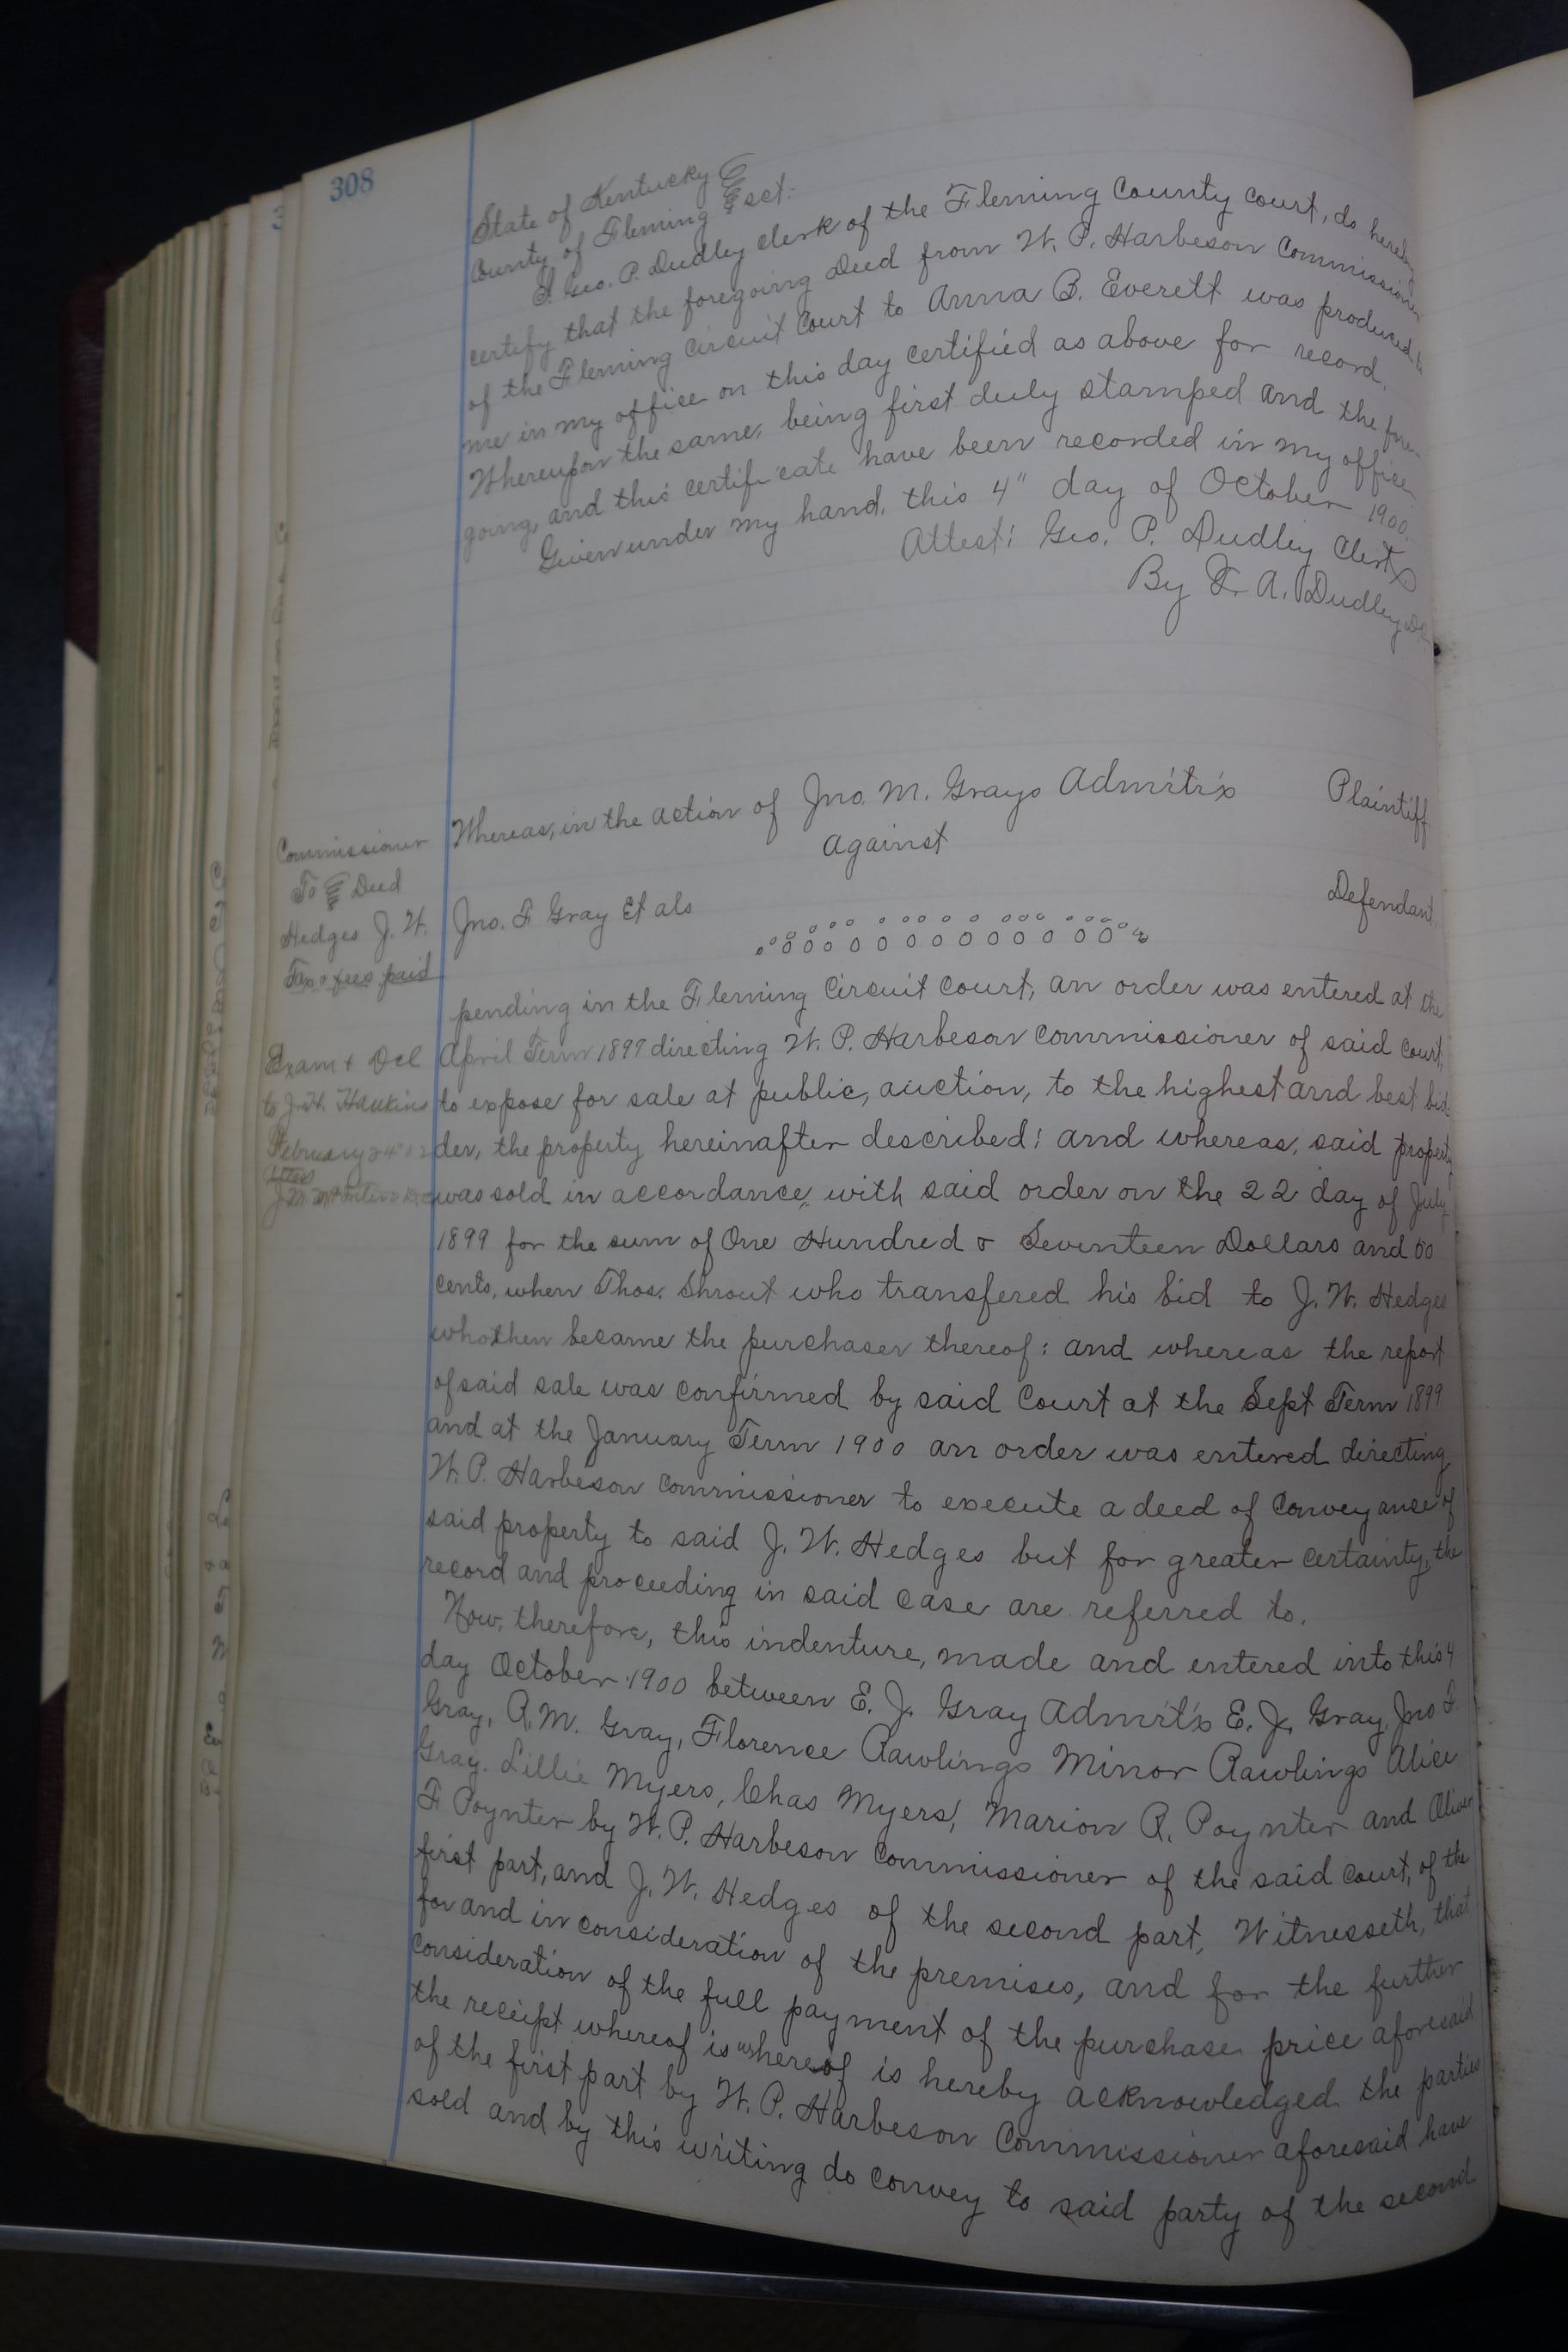 308
State of Kentucky
County of Fleming sct.
I Geo. P. Dudley Clerk of the Fleming County Court, do hereby
certify that the foregoing Deed from W. P. Harbeson Commissioner
of the Fleming Circuit Court to Anna B. Everett was produced to
me in my office on this day certified as above for record.
Whereupon the same, being first duly stamped and the fore-
going, and this certificate have been recorded in my office
Given under my hand, this 4" day of October 1900.
Attest: Geo. P. Dudley Clerk
By F. A. Dudley DC
Whereas, in the action of Jno. M. Grays Admrtrx Plaintiff
against
Jno. F Gray Et als Defendant
Commissioner
To Deed
Hedges J. W.
Tax & fees paid
Exam + Del
to J. H. Hawkins
February 24" 02
pending in the Fleming Circuit Court, an order was entered at the
April Term 1899 directing W. P. Harbeson Commissioner of said Court,
to expose for sale at public, auction, to the highest and best bid-
der, the property hereinafter described: and whereas, said property
was sold in accordance, with said order on the 22 day of July
1899 for the sum of One Hundred & Seventeen Dollars and 00
cents, when Thos. Shrout who transfered his bid to J. W. Hedges
who then became the purchaser thereof: and whereas the report
of said sale was confirmed by said Court at the Sept Term 1899
and at the January Term 1900 an order was entered directing
W. P. Harbeson Commissioner to execute a deed of Conveyance of
said property to said J. W. Hedges but for greater certainty, the
record and proceeding in said case are referred to.
Now, therefore, this indenture, made and entered into this 4
day October 1900 between E. J. Gray Admrtrx E. J. Gray, Jno F
Gray, R. M. Gray, Florence Rawlings Minor Rawlings Alice
Gray. Lillie Myers, Chas Myers, Marion R. Poynter and Oliver
F Poynter by W. P. Harbeson Commissioner of the said Court, of the
first part, and J. W. Hedges of the second part, Witnesseth, that
for and in consideration of the premises, and for the further
consideration of the full payment of the purchase price aforesaid
the receipt whereof is whereof is hereby acknowledged the parties
of the first part by W. P. Harbeson Commissioner aforesaid have
sold and by this writing do convey to said party of the second